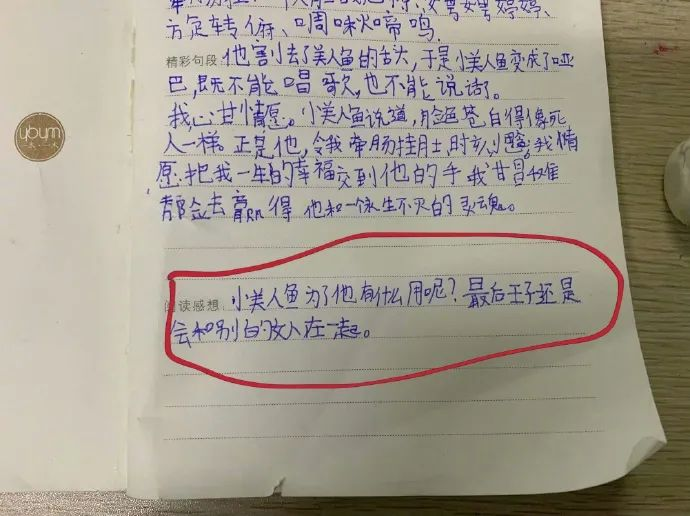 方定转俯、啁啾啼鸣
精彩句段:他割去了美人鱼的舌头,于是小美人鱼变成了哑
巴,既不能唱歌,也不能说话了。
我心甘情愿。小美人鱼说道,脸色苍白得像死
人一样。正是他,令我牵肠挂肚时刻 我情
愿把我一生的幸福交到他的手 我甘冒 难
都会去 得 他和一个永生不灭的灵魂。
阅读感想:小美人鱼为了他有什么用呢?最后王子还是
会和别的女人在一起。
ybym
一本一木